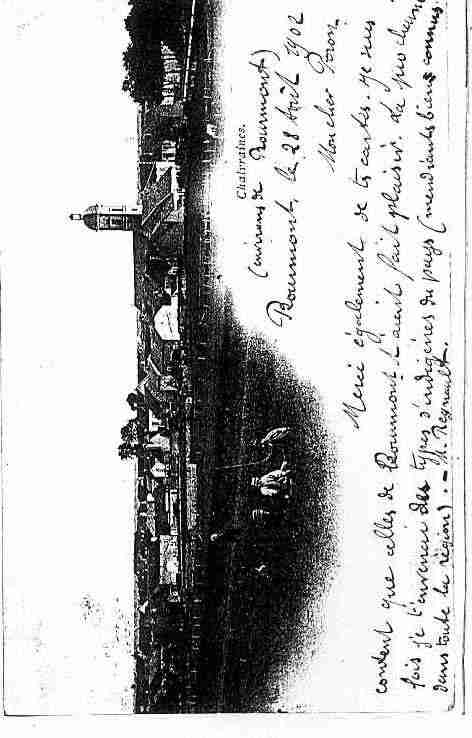 Chalvraines.
(environs de Bourmont)
Bourmont, le 28 Août 1902
Mon cher Poron
Merci également de tes cartes. Je suis
content que celles de Bourmont t'aient fait plaisir. La prochaine
fois je t'enverrai des types d'indigènes du pays (mendiants biens connus
dans toute la région). — M. Reynault.